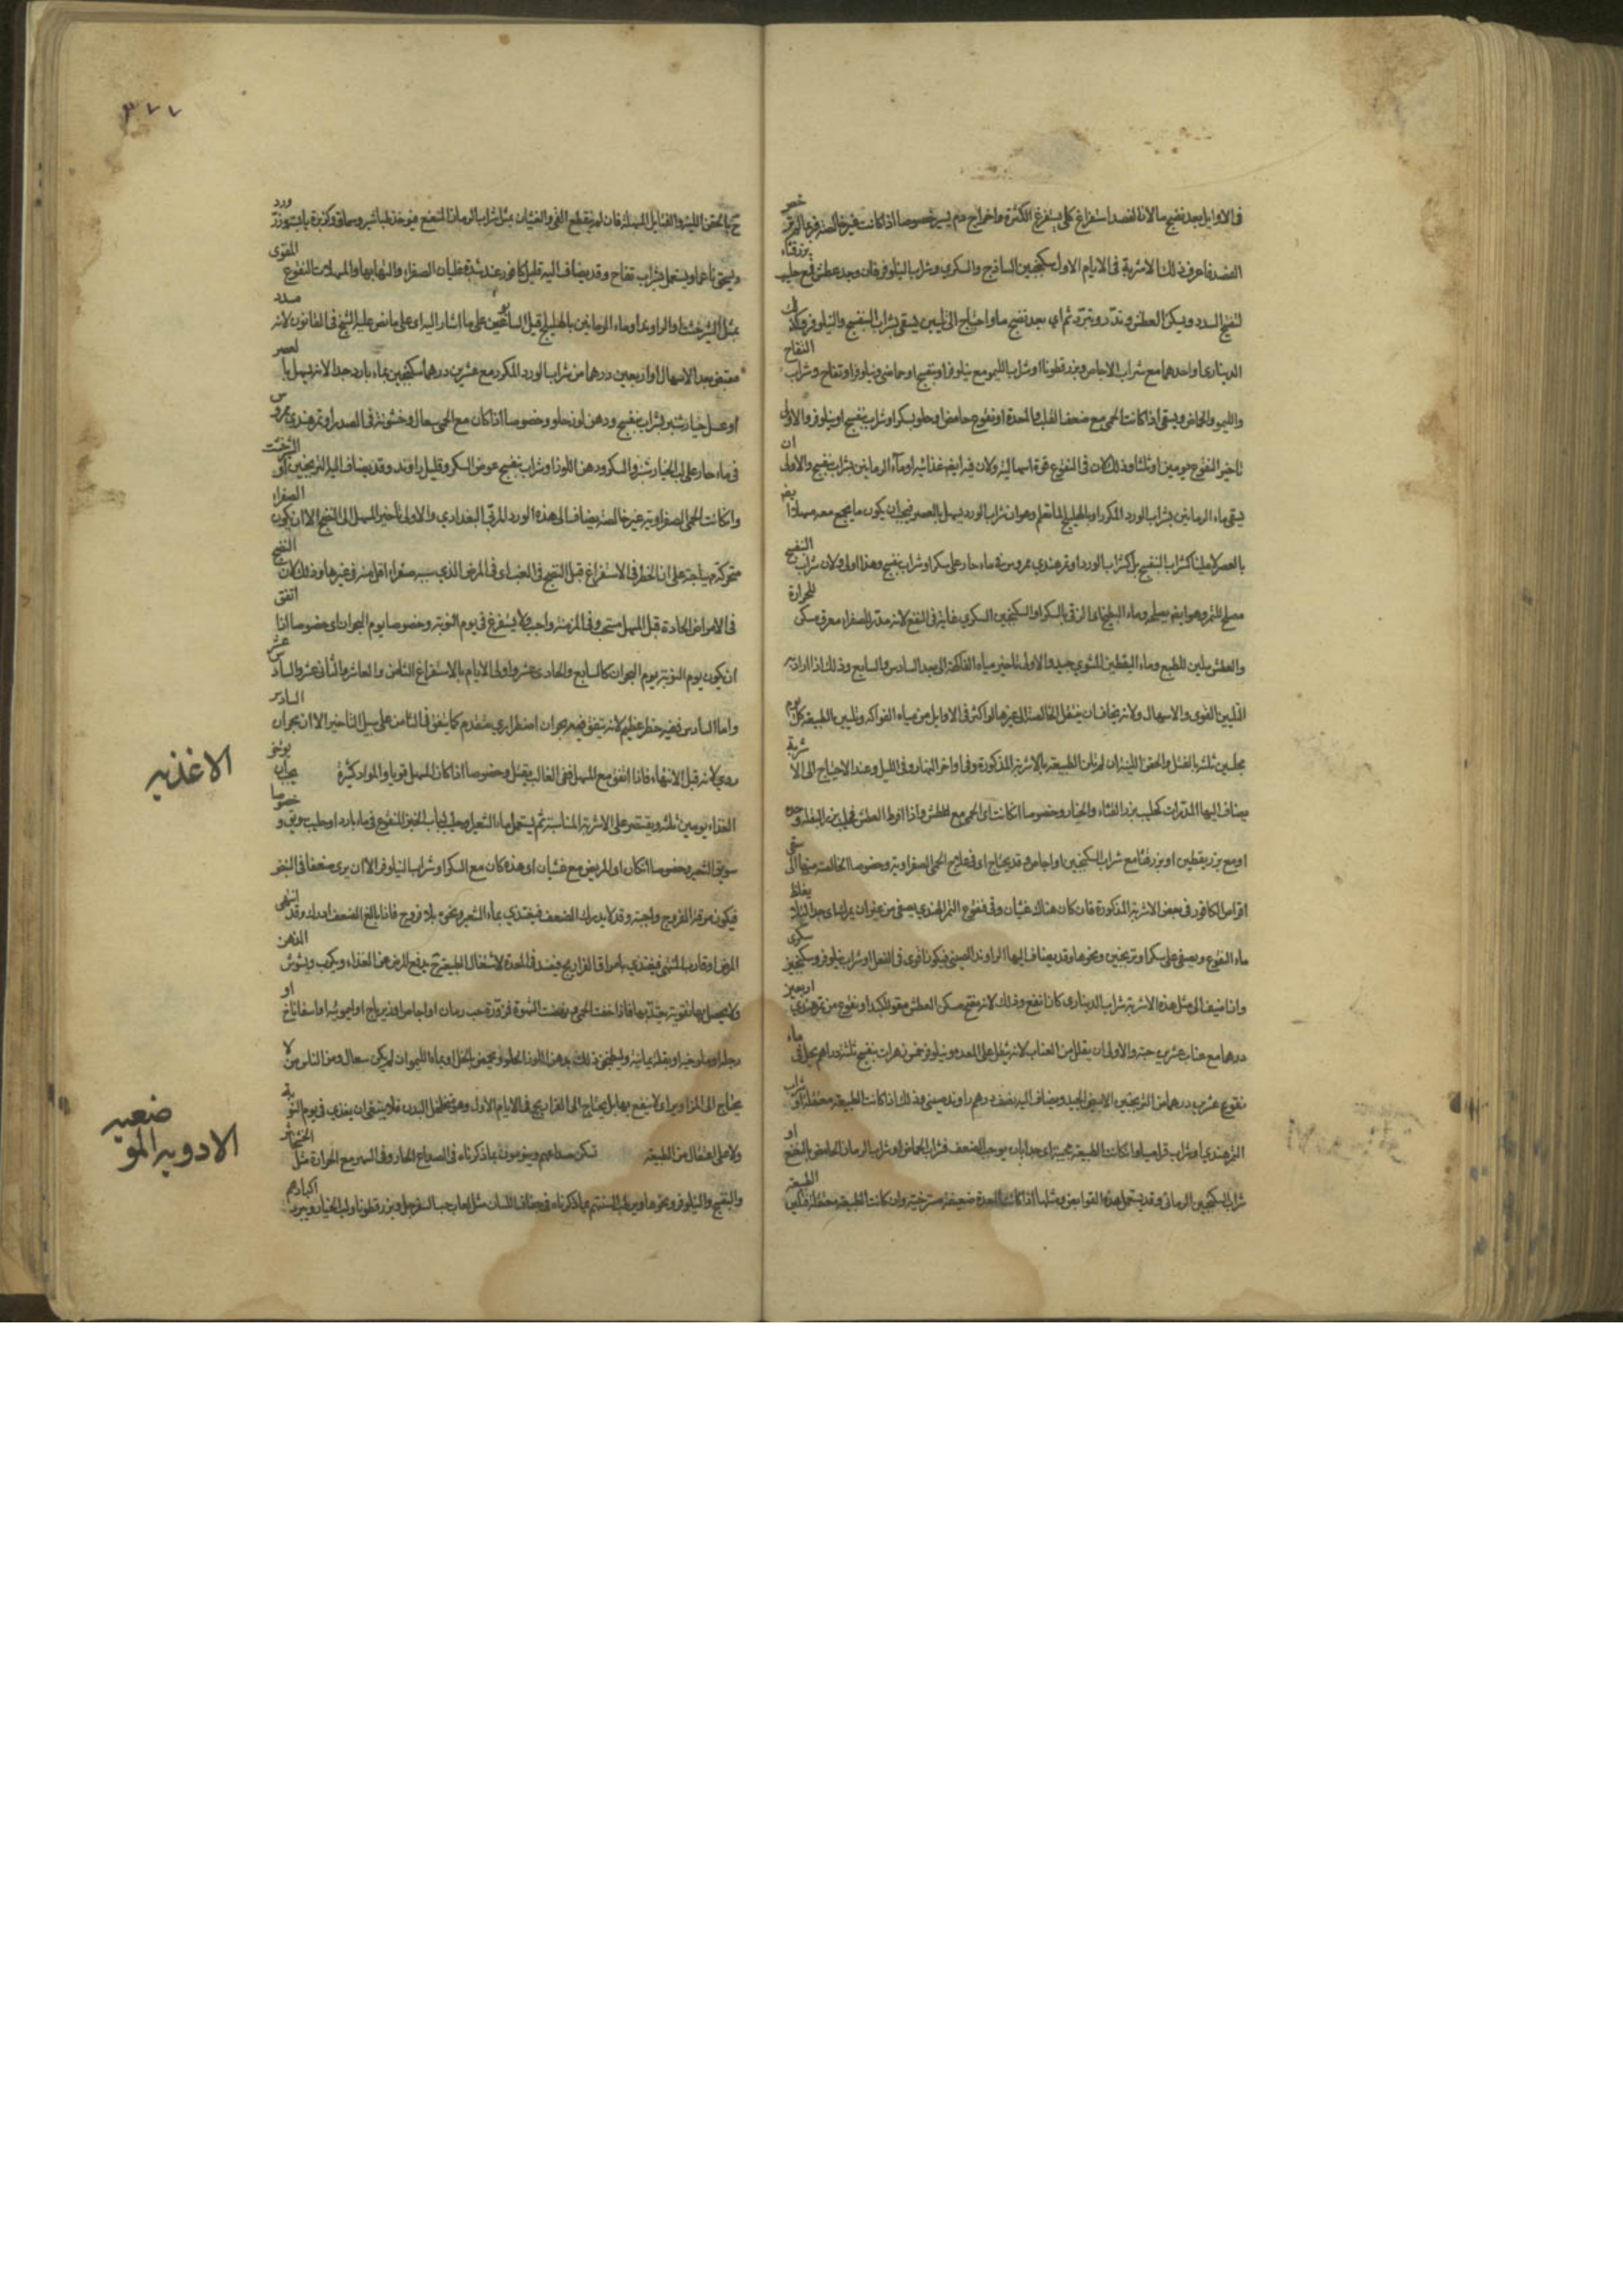 في الاوايل بعد نضج ما لان الفصد استفراغ كلي يستفرغ الكثرة واخراج دم يسير خصوصا اذا كانت غير خالصة
الفصد فاعرف ذلك الاشربة في الايام الاول سكنجبين الساذج والسكري وشراب النيلوفر فان وجد عطش فمع حليب بزر قثاء
لتفتح السدد ويسكن العطش وتدر وتبرد ثم اي بعد نضج ما واحتاج الى تليين يسقى شراب البنفسج والنيلوفر
الديناري او احدهما مع شراب الاجاص وبزر قطونا او شراب الليمو مع نيلوفر او بنفسج او حماض ونيلوفر او تفاح وشراب التفاح
والليمو والحماض ويسقى اذا كانت الحمى مع ضعف القلب والمعدة او نقوع حامض او حلو بسكر او شراب بنفسج او نيلوفر والاولى
تاخير النقوع يومين او ثلثا وذلك لان في النقوع قوة اسهالية ولان فيه ايضا غذائية او ماء الرمانين بشراب بنفسج والاولى ان
يسقى ماء الرمانين بشراب الورد المكرر او بالهليلج لما تعلم وهو ان شراب الورد يسهل بالعصر فيجب ان يكون ما يجمع معه مسهلا ايضا
بالعصر لا ملينا كشراب البنفسج بل كشراب الورد او تمر هندي ممروس في ماء حار على سكر او شراب بنفسج وهذا اولى لان شراب البنفسج
مصلح للتمر وهو ايضا يصلحه وماء البطيخ اي الزقي بالسكر او السكنجبين السكري غاية في النفع لانه مدر للصفراء معرق مسكن للحرارة
والعطش ملين للطبع وماء اليقطين المشوي جيد والاولى تاخير مياه الفاكهة الى بعد السادس والسابع وذلك
التليين القوي والاسهال ولانه يخاف ان ينتقل الخالصة الى غيرها لو اكثر في الاوايل من مياه الفواكه وتليين الطبيعة كل يوم
مجلسين ثلثة بالفتل والحقن اللينة ان لم تلن الطبيعة بالاشربة المذكورة وفي اواخر النهار وفي الليل وعند الاحتياج الى الاشربة
يضاف اليها المدرات كحليب بزر القثاء والخيار وخصوصا ان كانت اي الحمى مع عطش واذا افرط العطش فحليب بزر البقلة وحده
او مع بزر يقطين او بزر قثا مع شراب السكنجبين او اجاص وقد يحتاج اي في علاج الحمى الصفراوية وخصوصا الخالصة منها الى سقي
اقراص الكافور في بعض الاشربة المذكورة فان كان هناك غثيان وقي فنقوع التمر الهندي يصفى من غير ان يمرس
ماء النقوع ويصفى على سكر او ترنجبين ونحوها وقد يضاف اليها الراوند الصيني فيكون اقوى في الفعل او شراب نيلوفر وسكنجبين سكري
واذا اضيف الى مثل هذه الاشربة شراب الديناري كان انفع وذلك لانه مفتح مسكن العطش مقو للكبد او نقوع من تمر هندي اربعين
درهما مع عناب عشرين حبة والاولى ان يقلل من العناب لانه ثقيل على المعدة ونيلوفر خمس زهرات بنفسج ثلثة دراهم يحلى في ماء
نقوع عشرين درهما من الترنجبين الابيض الجيد ويضاف اليه نصف درهم راوند صيني وذلك اذا كانت الطبيعة معتقلة او شراب
التمر هندي او شراب قراصيا وان كانت الطبيعة مجيبة اي جدا بان يوجب الضعف فشراب الحماض او شراب الرمان الحامض بالنعنع او
شراب السكنجبين الرماني وقد يستعمل هذه القوابض ومثلها اذا كانت المعدة ضعيفة مسترخية وان كانت الطبيعة معتقلة فتلين الطبيعة
٣٧٧
ح بالحقن اللينة والفتايل المسهلة فان لم ينقطع القي والغثيان بمثل شراب الرمان المنعنع فيؤخذ طباشير وسماق وكزبرة يابسة وزر ورد
ويسحق ناعما ويستعمل بشراب تفاح وقد يضاف اليه قليل كافور عند شدة غليان الصفراء والتهابها والمسهلات النقوع المقوى
بمثل الشيرخشت او الراوند او ماء الرمانين بالهليلج قبل الساعتين على ما اشار اليه اي على ما نص عليه الشيخ في القانون لانه
مقبض بعد الاسهال او اربعين درهما من شراب الورد المكرر مع عشرين درهما سكنجبين بماء بارد جدا لانه يسهل بالعصر
او عسل خيارشنبر بشراب بنفسج ودهن لوز حلو وخصوصا اذا كان مع الحمى سعال وخشونة في الصدر او تمر هندي ممروس
في ماء حار على لب الخيارشنبر والسكر ودهن اللوز او شراب بنفسج عوض السكر وقليل راوند وقد يضاف اليه الترنجبين او الشيرخشت
وان كانت الحمى الصفراوية غير خالصة يضاف الى هذه الورد المربى البغدادي والاولى تاخير المسهل الى النضج الا ان يكون الصفراء
متحركة مهياجة على ان الخطر في الاستفراغ قبل النضج في الغب اي في المرض الذي سببه صفراء اقل منه في غيرها وذلك لان النضج
في الامراض الحادة قبل المسهل مستحب وفي المزمنة واجب ولا يستفرغ في يوم النوبة وخصوصا يوم البحران اي خصوصا اذا اتفق
ان يكون يوم النوبة يوم البحران كالسابع والحادي عشر واولى الايام بالاستفراغ الثامن والعاشر والثاني عشر والسادس عشر
واما السادس ففيه خطر عظيم لانه يتفق فيه بحران اضطراري متقدم كما يتفق في الثامن على سبيل التاخير الا ان بحران السادس
ردي لانه قبل الانتهاء فاذا اتفق مع المسهل ففي الغالب يقتل وخصوصا اذا كان المسهل قويا والمواد كثيرة
الاغذية
يجب ان
الغذاء يومين ثلثة ويقتصر على الاشربة المناسبة ثم يستعمل ماء الشعير
سويق الشعير وخصوصا ان كان او المريض مع غثيان او هذه كان مع السكر او شراب النيلوفر الا ان يرى ضعفا في النبض
فيكون مرقة الفروج واجبة وقد لا يدرك الضعف فيغتذي بماء الشعير ونحوه بلا فروج فاذا بالغ الضعف ادرك وقد
المرض او قارب المنتهى فيغتذي بامراق الفراريج فيفسد في المعدة لاشتغال الطبيعة ح بدفع المرض عن الغذاء ويكرب ويشوش الذهن
ولا يحصل بها تقوية يعتد بها فاذا خفت الحمى ونهضت الشهوة فمزورة حب رمان او اجاص او زيرباج او اميرية او اسفاناخ او
رجلة او ملوخية او بقلة يمانية وليطبخ ذلك بدهن اللوز الحلو ويحمض بالخل او بماء الليمو ان لم يكن سعال ومن الناس من لا
يحتاج الى المزاوير اي لا ينتفع بها بل يحتاج الى الفراريج في الايام الاول وهو متخلخل البدن فلا ينبغي ان يغذي في يوم النوبة
ولا على اعتقال من الطبيعة
الادوية الموضعية
تسكن صداعهم وينومون بما ذكرناه في الصداع الحار وفي السهر مع الحرارة مثل الخشخاش
والبنفسج والنيلوفر ونحوها ويرطب السنتهم بما ذكرناه في جفاف اللسان مثل لعاب حب السفرجل وبزر قطونا ولب الخيار ويبرد اكبادهم